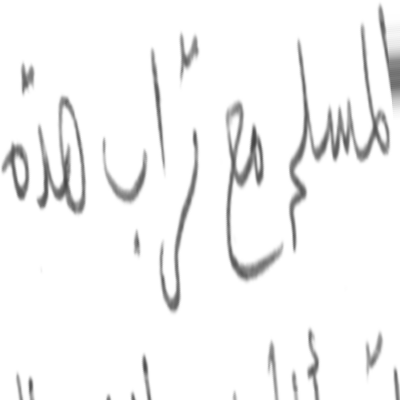 المسلم مع تراب هذة